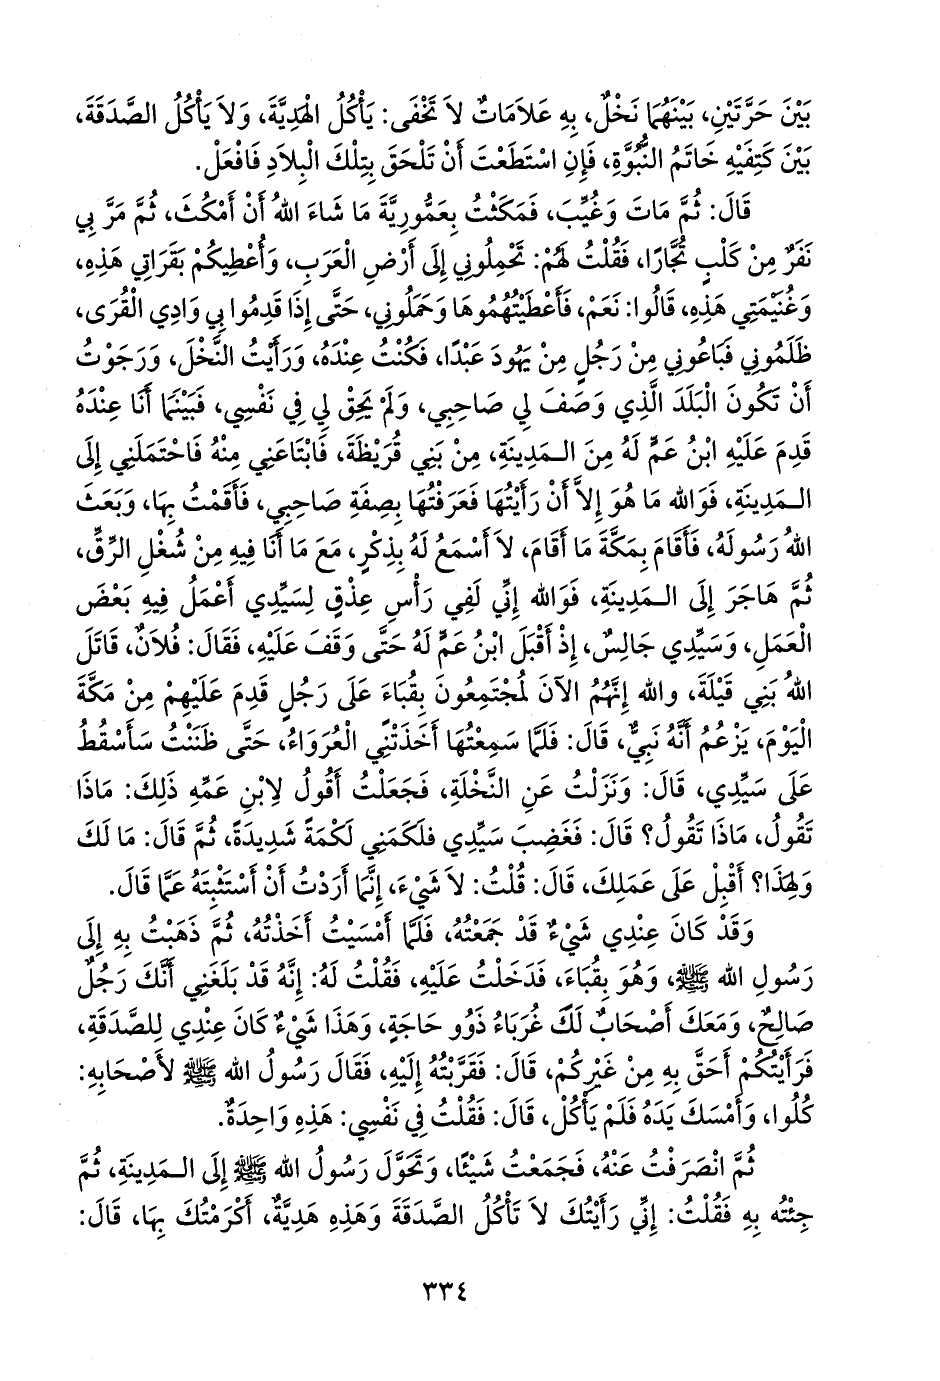 بَيْنَ حَرَّتَيْنِ، بَيْنَهُمَا نَخْلٌ، بِهِ عَلَامَاتٌ لَا تَخْفَى: يَأْكُلُ الْهَدِيَّةَ، وَلَا يَأْكُلُ الصَّدَقَةَ،
بَيْنَ كَتِفَيْهِ خَاتَمُ النُّبُوَّةِ، فَإِنِ اسْتَطَعْتَ أَنْ تَلْحَقَ بِتِلْكَ الْبِلَادِ فَافْعَلْ.
قَالَ: ثُمَّ مَاتَ وَغُيِّبَ، فَمَكَثْتُ بِعَمُّورِيَّةَ مَا شَاءَ اللهُ أَنْ أَمْكُثَ، ثُمَّ مَرَّ بِي
نَفَرٌ مِنْ كَلْبٍ تُجَّارًا، فَقُلْتُ لَهُمْ: تَحْمِلُونِي إِلَى أَرْضِ الْعَرَبِ، وَأُعْطِيكُمْ بَقَرَاتِي هَذِهِ،
وَغُنَيْمَتِي هَذِهِ، قَالُوا: نَعَمْ، فَأَعْطَيْتُهُمُوهَا وَحَمَلُونِي، حَتَّى إِذَا قَدِمُوا بِي وَادِي الْقُرَى،
ظَلَمُونِي فَبَاعُونِي مِنْ رَجُلٍ مِنْ يَهُودَ عَبْدًا، فَكُنْتُ عِنْدَهُ، وَرَأَيْتُ النَّخْلَ، وَرَجَوْتُ
أَنْ تَكُونَ الْبَلَدَ الَّذِي وَصَفَ لِي صَاحِبِي، وَلَمْ يَحِقْ لِي فِي نَفْسِي، فَبَيْنَمَا أَنَا عِنْدَهُ
قَدِمَ عَلَيْهِ ابْنُ عَمٍّ لَهُ مِنَ الْمَدِينَةِ، مِنْ بَنِي قُرَيْظَةَ، فَابْتَاعَنِي مِنْهُ فَاحْتَمَلَنِي إِلَى
الْمَدِينَةِ، فَوَالله مَا هُوَ إِلَّا أَنْ رَأَيْتُهَا فَعَرَفْتُهَا بِصِفَةِ صَاحِبِي، فَأَقَمْتُ بِهَا، وَبَعَثَ
اللهُ رَسُولَهُ، فَأَقَامَ بِمَكَّةَ مَا أَقَامَ، لَا أَسْمَعُ لَهُ بِذِكْرٍ، مَعَ مَا أَنَا فِيهِ مِنْ شُغْلِ الرِّقِّ،
ثُمَّ هَاجَرَ إِلَى الْمَدِينَةِ، فَوَالله إِنِّي لَفِي رَأْسِ عِذْقٍ لِسَيِّدِي أَعْمَلُ فِيهِ بَعْضَ
الْعَمَلِ، وَسَيِّدِي جَالِسٌ، إِذْ أَقْبَلَ ابْنُ عَمٍّ لَهُ حَتَّى وَقَفَ عَلَيْهِ، فَقَالَ: فُلَانٌ، قَاتَلَ
اللهُ بَنِي قَيْلَةَ، والله إِنَّهُمُ الآنَ لَمُجْتَمِعُونَ بِقُبَاءَ عَلَى رَجُلٍ قَدِمَ عَلَيْهِمْ مِنْ مَكَّةَ
الْيَوْمَ، يَزْعُمُ أَنَّهُ نَبِيٌّ، قَالَ: فَلَمَّا سَمِعْتُهَا أَخَذَتْنِي الْعُرَوَاءُ، حَتَّى ظَنَنْتُ سَأَسْقُطُ
عَلَى سَيِّدِي، قَالَ: وَنَزَلْتُ عَنِ النَّخْلَةِ، فَجَعَلْتُ أَقُولُ لِابْنِ عَمِّهِ ذَلِكَ: مَاذَا
تَقُولُ، مَاذَا تَقُولُ؟ قَالَ: فَغَضِبَ سَيِّدِي فلَكَمَنِي لَكْمَةً شَدِيدَةً، ثُمَّ قَالَ: مَا لَكَ
وَلِهَذَا؟ أَقْبِلْ عَلَى عَمَلِكَ، قَالَ: قُلْتُ: لَا شَيْءَ، إِنَّمَا أَرَدْتُ أَنْ أَسْتَثْبِتَهُ عَمَّا قَالَ.
وَقَدْ كَانَ عِنْدِي شَيْءٌ قَدْ جَمَعْتُهُ، فَلَمَّا أَمْسَيْتُ أَخَذْتُهُ، ثُمَّ ذَهَبْتُ بِهِ إِلَى
رَسُولِ الله ﷺ، وَهُوَ بِقُبَاءَ، فَدَخَلْتُ عَلَيْهِ، فَقُلْتُ لَهُ: إِنَّهُ قَدْ بَلَغَنِي أَنَّكَ رَجُلٌ
صَالِحٌ، وَمَعَكَ أَصْحَابٌ لَكَ غُرَبَاءُ ذَوُو حَاجَةٍ، وَهَذَا شَيْءٌ كَانَ عِنْدِي لِلصَّدَقَةِ،
فَرَأَيْتُكُمْ أَحَقَّ بِهِ مِنْ غَيْرِكُمْ، قَالَ: فَقَرَّبْتُهُ إِلَيْهِ، فَقَالَ رَسُولُ الله ﷺ لأَصْحَابِهِ:
كُلُوا، وَأَمْسَكَ يَدَهُ فَلَمْ يَأْكُلْ، قَالَ: فَقُلْتُ فِي نَفْسِي: هَذِهِ وَاحِدَةٌ.
ثُمَّ انْصَرَفْتُ عَنْهُ، فَجَمَعْتُ شَيْئًا، وَتَحَوَّلَ رَسُولُ الله ﷺ إِلَى الْمَدِينَةِ، ثُمَّ
جِئْتُه بِهِ فَقُلْتُ: إِنِّي رَأَيْتُكَ لَا تَأْكُلُ الصَّدَقَةَ وَهَذِهِ هَدِيَّةٌ، أَكْرَمْتُكَ بِهَا، قَالَ:
٣٣٤